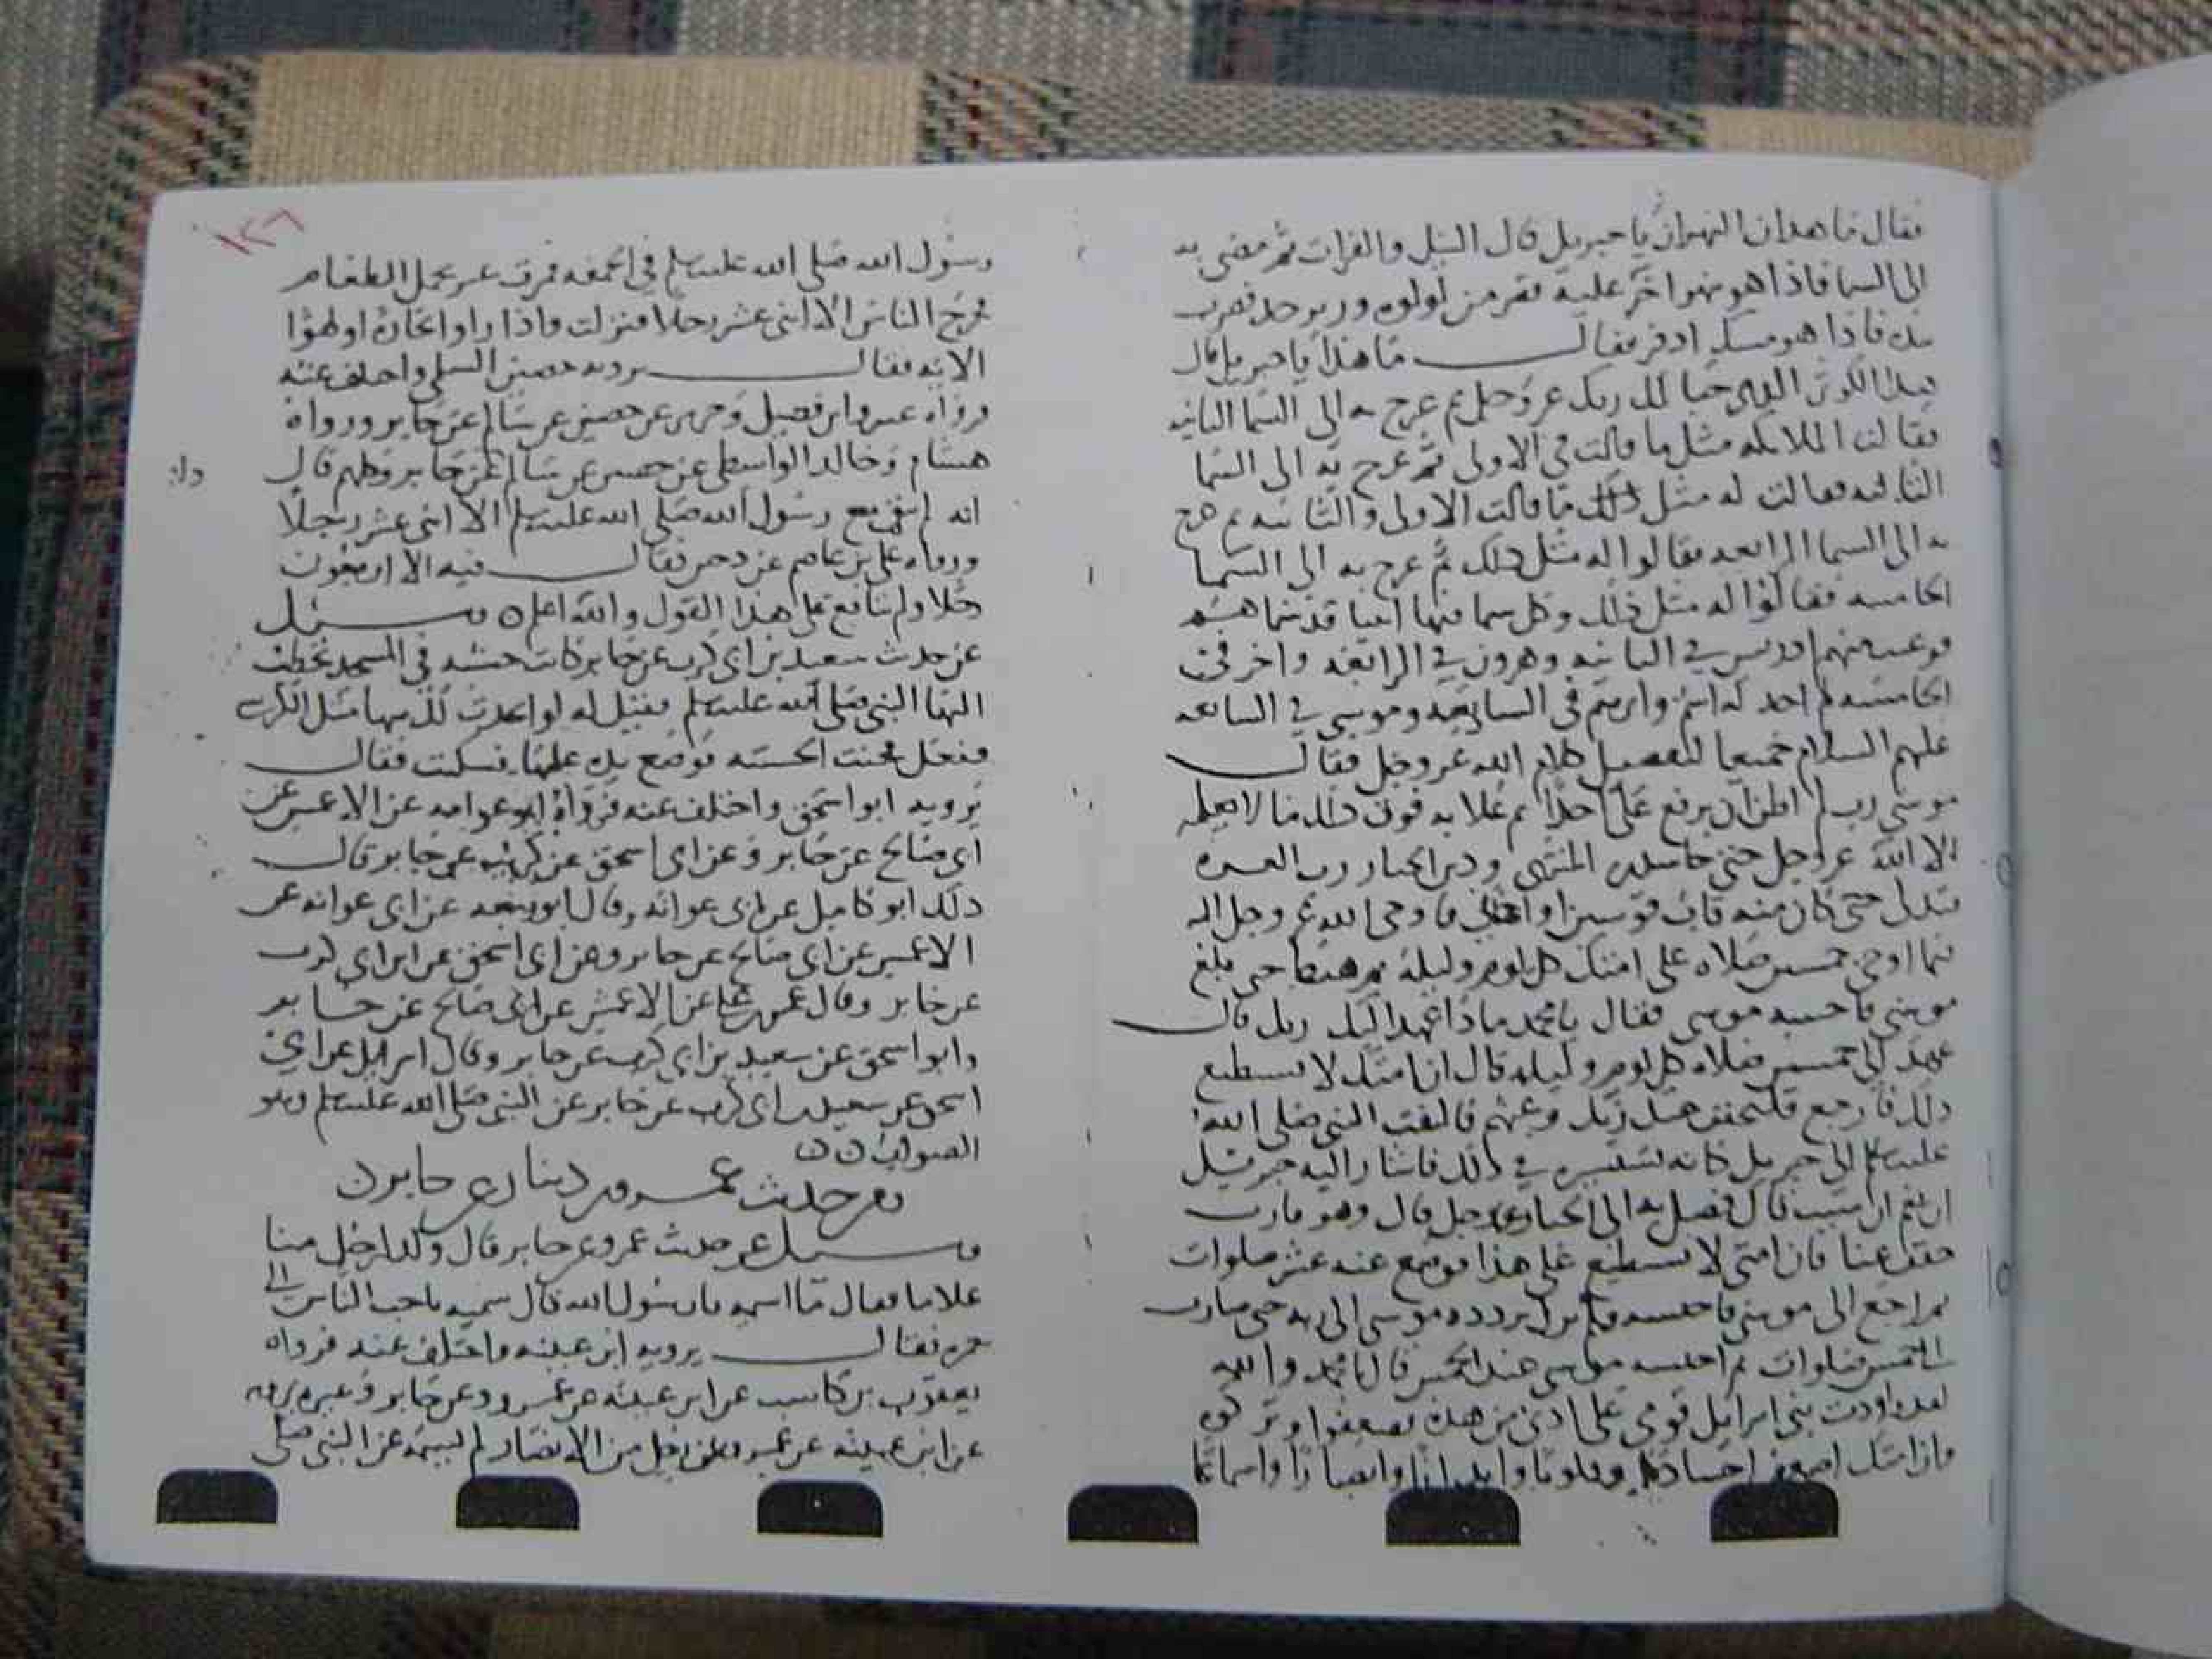 فقال ما هذان النهران يا جبريل قال النيل والفرات ثم مضى به
الى السما فاذا هو بنهر اخر عليه قصر من لولوه وزبرجد فضرب
يده فاذا هو مسك اذفر فقال ما هذا يا جبريل قال
هذا الكوثر الذي خبا لك ربك عز وجل ثم عرج به الى السما الثانيه
فقالت الملايكه مثل ما قالت في الاولى ثم عرج به الى السما
الثالثه فقالت له مثل ذلك ما قالت الاولى والثانيه ثم عرج
به الى السما الرابعه فقالوا له مثل ذلك ثم عرج به الى السما
الخامسه فقالوا له مثل ذلك وكل سما فيها انبيا قد سماهم
فوعيت منهم ادريس في الثانيه وهرون في الرابعه واخر في
الخامسه لم احفظ اسمه وابرهيم في السادسه وموسى في السابعه
عليهم السلام جميعا لتفضيل كلام الله عز وجل فقال
موسى رب لم اظن ان يرفع علي احدا ثم علا به فوق ذلك ما لا يعلمه
الا الله عز وجل حتى جا سدره المنتهى ودنى الجبار رب العزه
فتدلى حتى كان منه قاب قوسين او ادنى فاوحى الله عز وجل اليه
فيما اوحى خمسين صلاه على امتك كل يوم وليلة ثم هبط حتى بلغ
موسى فاحتبسه موسى فقال يا محمد ماذا عهد اليك ربك قال
عهد الي خمسين صلاه كل يوم وليله قال ان امتك لا تستطيع
ذلك فارجع فليخفف عنك ربك وعنهم فالتفت النبي صلى الله
عليه وسلم الى جبريل كانه يستشيره في ذلك فاشار اليه جبريل
ان نعم ان شيت قال فصل به الى الجبار عز وجل قال وهو يا رب
خفف عنا فان امتي لا تستطيع على هذا فوضع عنه عشر صلوات
ثم رجع الى موسى فاحتبسه فلم يزل يردده موسى الى ربه حتى صارت
الى خمس صلوات ثم احتبسه موسى عند الخمس قال يا محمد والله
لقد راودت بني اسرايل قومي على ادنى من هذه فضعفوا وتركوه
وان امتك اضعف اجسادا وقلوبا وابدانا وابصارا واسماعا
١٢٦
رسول الله صلى الله عليه وسلم في الجمعه فمرت عير تحمل الطعام
فخرج الناس الا اثنى عشر رجلا فنزلت واذا راوا تجارة او لهوا
الايه فقال يرويه حصين السلمي واختلف عنه
فرواه عبثر وابن فضيل وجرير عن حصين عن سالم عن جابر ورواه
هشام وخالد الواسطي عن حصين عن سالم عن جابر وكلهم قال
انه لم يبق مع رسول الله صلى الله عليه وسلم الا اثنى عشر رجلا
ورواه علي بن عاصم عن حصين فقال فيه الا اربعون
رجلا ولم يتابع على هذا القول والله اعلم ٥ وسئل
عن حديث سعيد بن ابي كرب عن جابر كانت خشبه في المسجد يخطب
اليها النبي صلى الله عليه وسلم فقيل له لو اتخذت لك منها مثل الكرسي
ففعل فحنت الخشبه فوضع يده عليها فسكنت فقال
يرويه ابو اسحق واختلف عنه فرواه ابو عوانه عن الاعمش عن
ابي صالح عن جابر وعن ابي اسحق عن كريب عن جابر قال
ذلك ابو كامل عن ابي عوانه وقال ابو ربيعه عن ابي عوانه عن
الاعمش عن ابي صالح عن جابر وعن ابي اسحق عن ابن ابي كرب
عن جابر وقال عمر بن علي عن الاعمش عن ابي صالح عن جابر
وابو اسحق عن سعيد بن ابي كرب عن جابر وقال اسرايل عن ابي
اسحق عن سعيد بن ابي كرب عن جابر عن النبي صلى الله عليه وسلم وهو
الصواب
ومن حديث عمرو بن دينار عن جابر
وسئل عن حديث عمرو عن جابر قال ولد لرجل منا
غلاما فقال ما اسميه يا رسول الله قال سميه باحب الناس الي
حمزه فقال يرويه ابن عيينه واختلف عنه فرواه
يعقوب بن كاسب عن ابن عيينه عن عمرو عن جابر وغيره يرويه
عن ابن عيينه عن عمرو عن رجل من الانصار لم يسمه عن النبي صلى